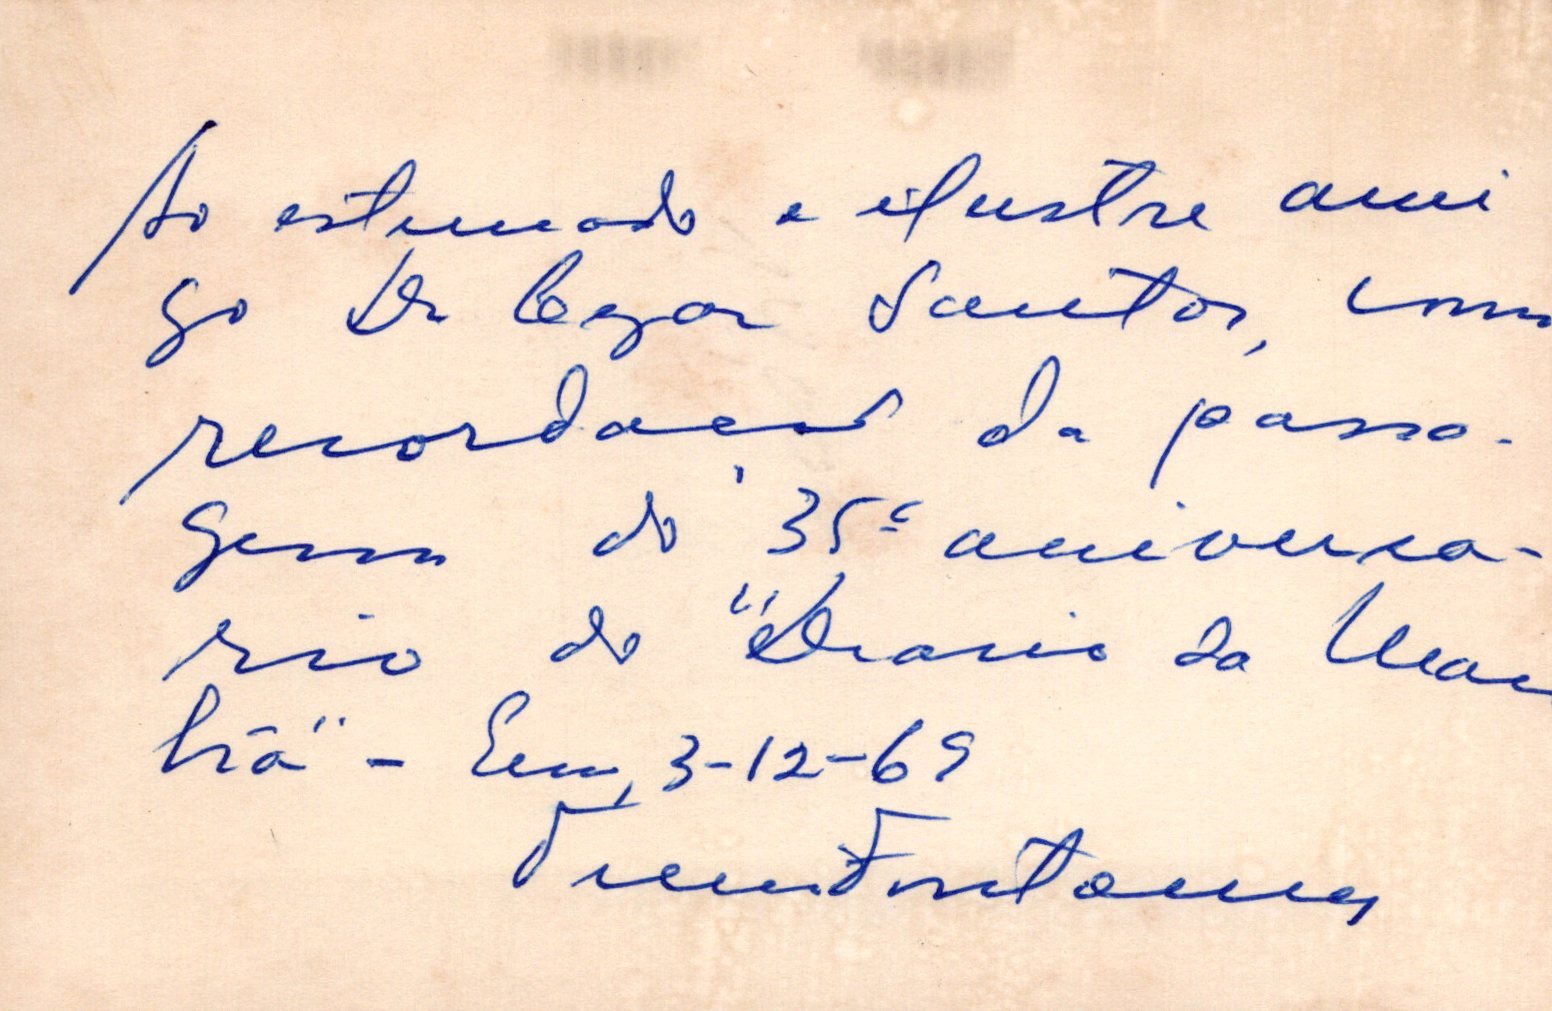 Ao estimado e ilustre ami
go Dr Cezar Santos, com
recordação da passa-
gem do 35º aniversa-
rio do "Diario da Man
hã" - Em, 3-12-69